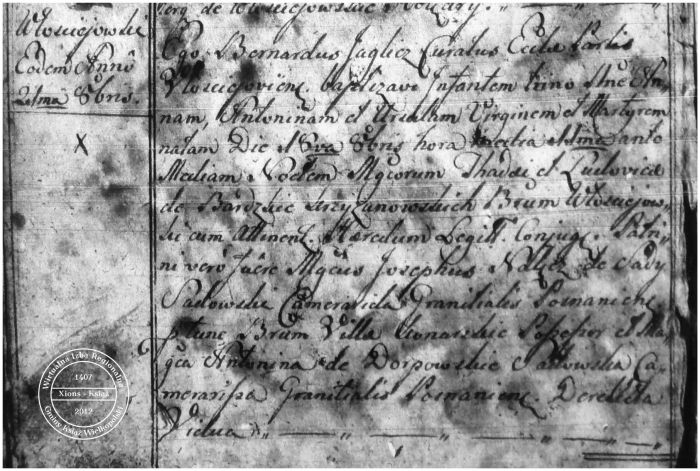 de Włosciejowskie
Włosciejewskie
Eodem Anno
21ma 8bris.
X
Ego Bernardus Jaglicz Curatus Eccliæ Parlis
Włosciejovien: baptizavi Infantem trino Nne An-
nam, Antoninam et Ursulam Virginem et Martyrem
natam Die 18va 8bris hora ante
Mediam Noctem Mgcorum Thaddæi et Ludovica
de Bardzkie Krzyzanowskich Brum Włosciejow-
ski cum Attinent. Hæredum Legitt. Conjug. Patri-
ni vero fuere Mgcus Josephus Nałęcz de Sady
Sadowski Camerarida Granitialis Posnanien:
ptunc Brum Villæ Konarskie Possessor et Ma-
gca Antonina de Dorpowskie Sadowska Ca-
merarissa Granitialis Posnanien: Derelicta
Vidua
Wirtualna Izba Regionalna
1407
Xions - Książ
2012
Gminy Książ Wielkopolski